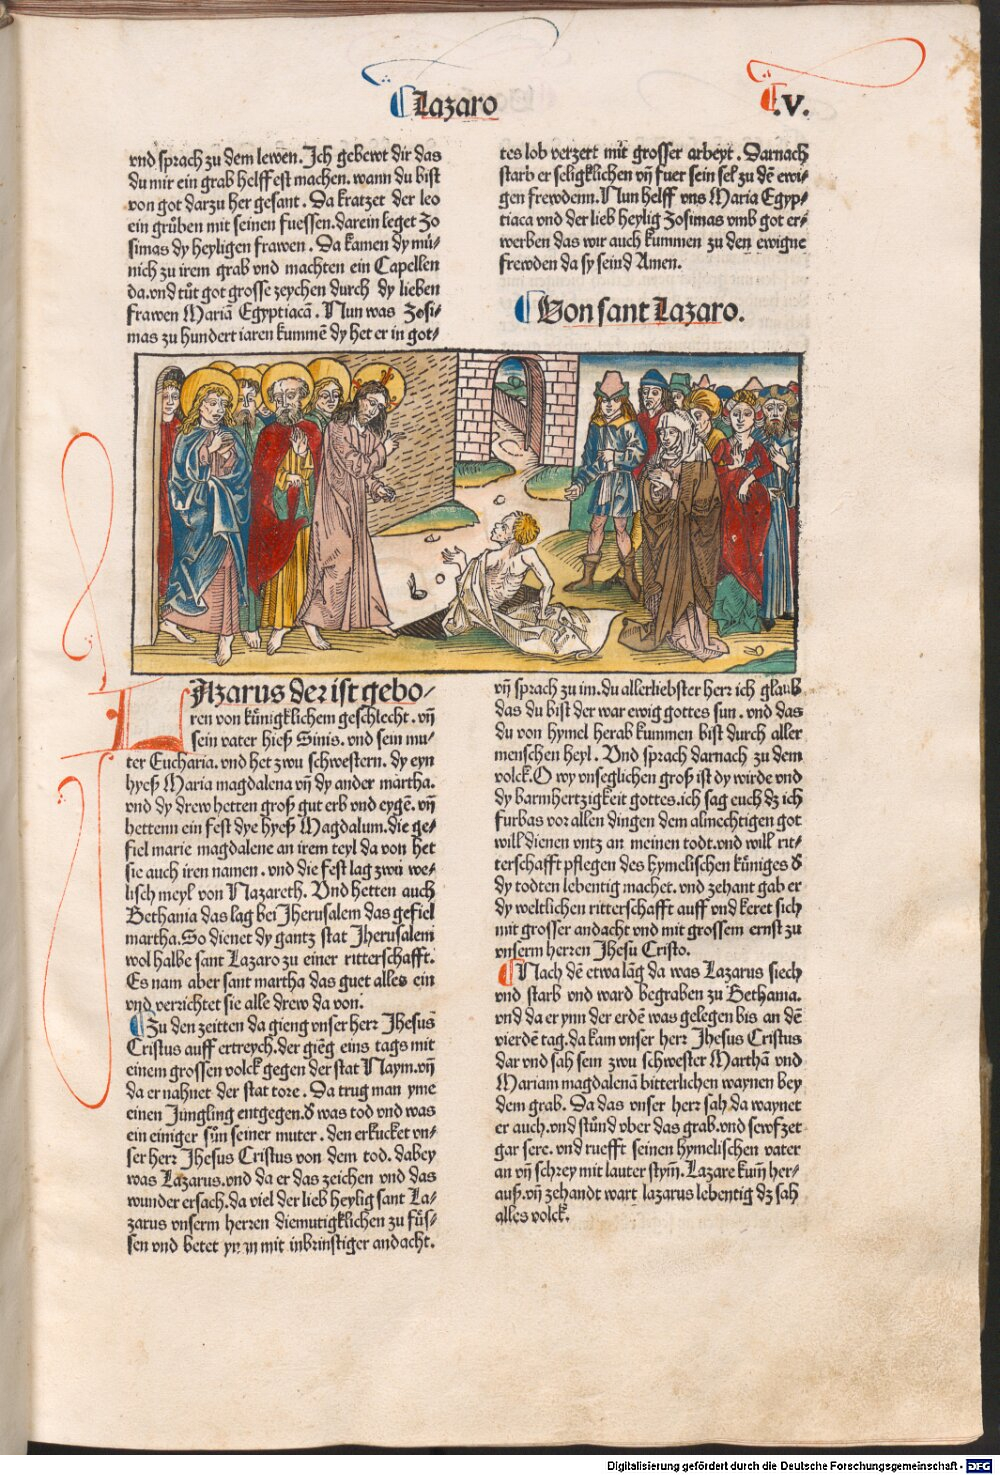 Lazaro
.V.
vnd sprach zu dem lewen. Ich gebewt dir das
du mir ein grab helffest machen. wann du bist
von got darzu her gesant. Da kratzet der leo
ein grůben mit seinen fuessen. darein leget Zo
simas dy heyligen frawen. Da kamen dy mů⸗
nich zu irem grab vnd machten ein Capellen
da. vnd tůt got grosse zeychen durch dy lieben
frawen Mariā Egyptiacā. Nun was Zosi⸗
mas zu hundert iaren kummē dy het er in got⸗
tes lob verzert mit grosser arbeyt. Darnach
starb er seligklichen vñ fuer sein sel zu dē ewi⸗
gen frewdenn. Nun helff vns Maria Egyp⸗
tiaca vnd der lieb heylig Zosimas vmb got er⸗
werben das wir auch kummen zu den ewigne
frewden da sy seind Amen.
Von sant Lazaro.
LAzarus der ist gebo⸗
ren von kůnigklichem geschlecht. vñ
sein vater hieß Sinis. vnd sein mu⸗
ter Eucharia. vnd het zwu schwestern. dy eyn
hyeß Maria magdalena vñ dy ander martha.
vnd dy drew hetten groß gut erb vnd eygē. vñ
hettenn ein fest dye hyeß Magdalum. die ge⸗
fiel marie magdalene an irem teyl da von het
sie auch iren namen. vnd die fest lag zwu we⸗
lisch meyl von Nazareth. Vnd hetten auch
Bethania das lag bei Jherusalem das gefiel
martha. So dienet dy gantz stat Jherusalem
wol halbe sant Lazaro zu einer ritterschafft.
Es nam aber sant martha das guet alles ein
vnd verrichtet sie alle drew da von.
Zu den zeitten da gieng vnser herr Jhesus
Cristus auff ertreych. der giēg eins tags mit
einem grossen volck gegen der stat Naym. vñ
da er nahnet der stat tore. Da trug man yme
einen Jungling entgegen. d̕ was tod vnd was
ein einiger sůn seiner muter. den erkucket vn⸗
ser herr Jhesus Cristus von dem tod. dabey
was Lazarus. vnd da er das zeichen vnd das
wunder ersach. da viel der lieb heylig sant La⸗
zarus vnserm herren diemutigklichen zu fůs⸗
sen vnd betet yn an mit inbrinstiger andacht.
vñ sprach zu im. du allerliebster herr ich glaub
das du bist der war ewig gottes sun. vnd das
du von hymel herab kummen bist durch aller
menschen heyl. Vnd sprach darnach zu dem
volck. O wy vnseglichen groß ist dy wirde vnd
dy barmhertzigkeit gottes. ich sag euch dz ich
furbas vor allen dingen dem almechtigen got
will dienen vntz an meinen todt. vnd will rit⸗
terschafft pflegen des hymelischen kůniges d̕
dy todten lebentig machet. vnd zehant gab er
dy weltlichen ritterschafft auff vnd keret sich
mit grosser andacht vnd mit grossem ernst zu
vnserm herren Jhesu Cristo.
Nach dē etwa lāg da was Lazarus siech
vnd starb vnd ward begraben zu Bethania.
vnd da er ynn der erdē was gelegen bis an dē
vierdē tag. da kam vnser herr Jhesus Cristus
dar vnd sah sein zwu schwester Marthā vnd
Mariam magdalenā bitterlichen waynen bey
dem grab. Da das vnser herr sah da waynet
er auch. vnd stůnd vber das grab. vnd sewfzet
gar sere. vnd ruefft seinen hymelischen vater
an vñ schrey mit lauter stym̄. Lazare kum̄ her⸗
auß. vñ zehandt wart lazarus lebentig dz sah
alles volck.
Digitalisierung gefördert durch die Deutsche Forschungsgemeinschaft - DFG